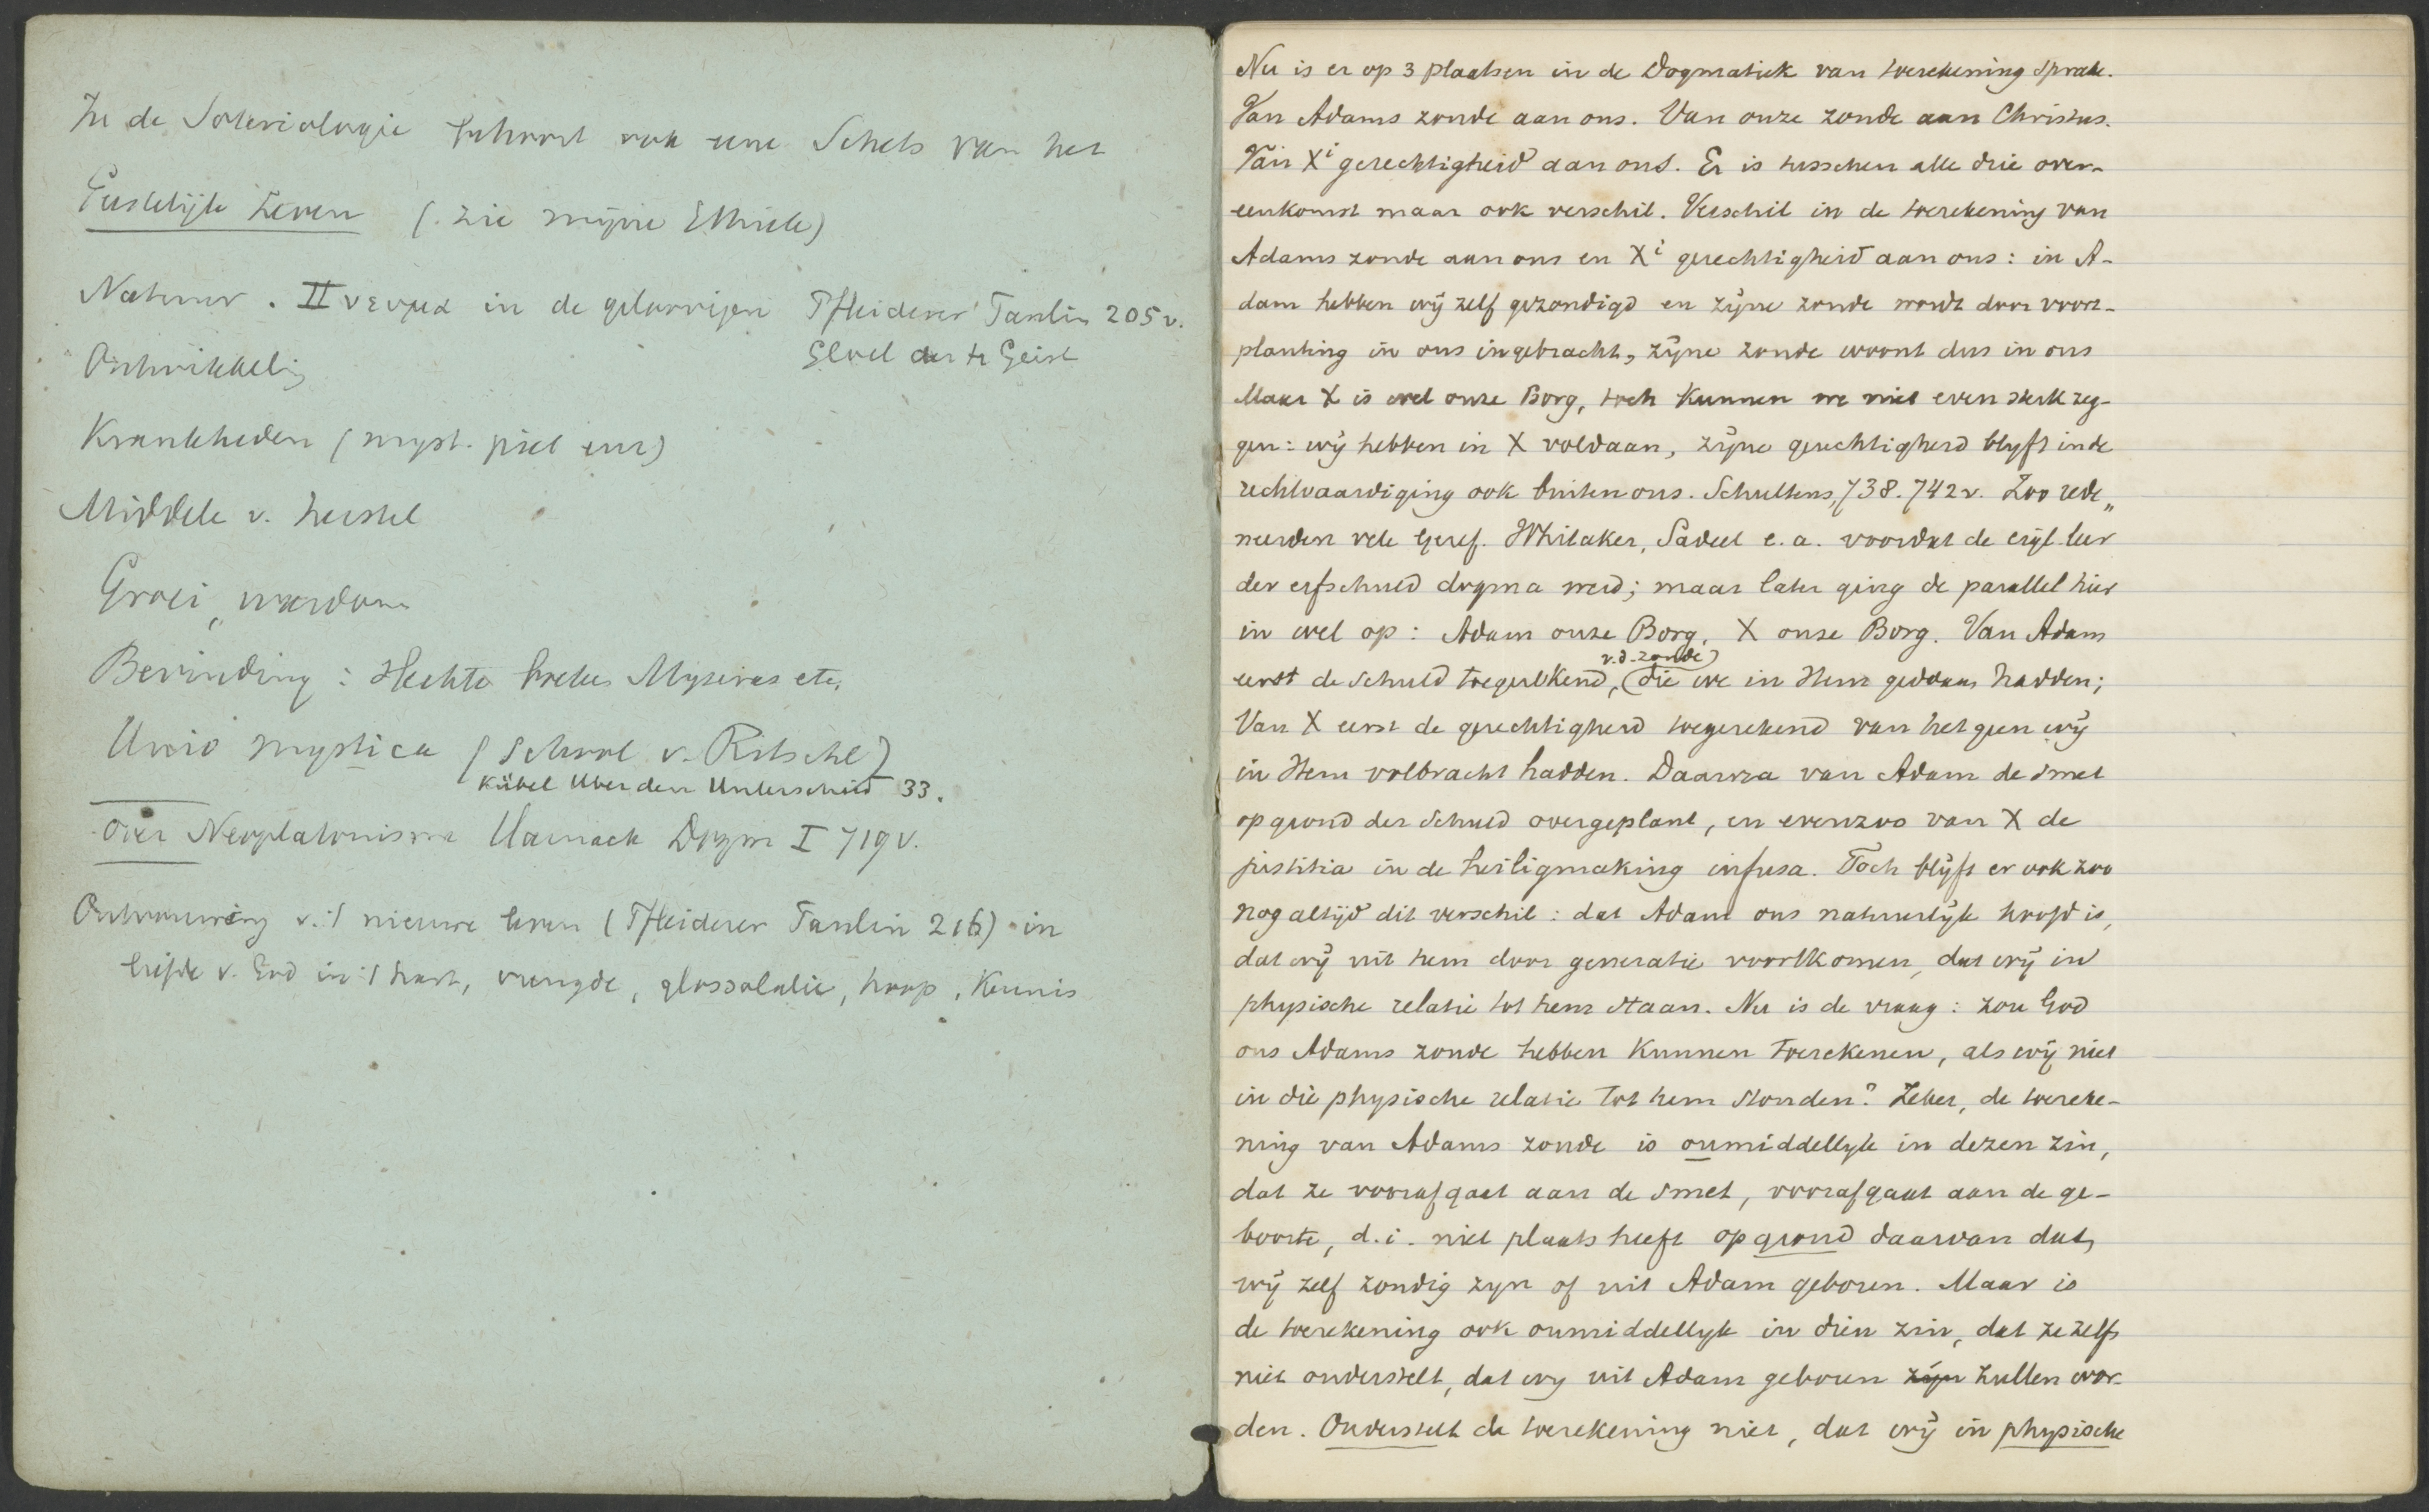 In de Soteriologie behoort ook eene Schets van het
Geestelijk Leven (zie mijne Ethiek)
Natuur. Πνευμα in de geloovigen Pfleiderer Paulin 205 v.
Gloel der h Geist
Ontwikkeling
Krankheden (myst. piet enz)
Middele v. herstel
Groei, wasdom
Bevinding: Hechte Mysires etc.
Unio mystica (School v. Ritschl)
Kübel Uber den Unterschied 33.
Over Neoplatonisme Harnack Dogm I 719 v.
Ontvouwing v. 't nieuwe leven (Pfleiderer Paulin 216) in
liefde v. God in 't hart, vreugde, glossolalie, hoop, Kennis
Nu is er op 3 plaatsen in de Dogmatiek van toerekening sprake.
Van Adams zonde aan ons. Van onze zonde aan Christus.
Van Xi gerechtigheid aan ons. Er is tusschen alle drie over-
eenkomst maar ook verschil. Verschil in de toerekening van
Adams zonde aan ons en Xi gerechtigheid aan ons: in A-
dam hebben wij zelf gezondigd en zijne zonde wordt door voort-
planting in ons ingebracht, zijne zonde woont dus in ons
Maar X is wel onze Borg, toch kunnen we niet even sterk zeg-
gen: wij hebben in X voldaan, zijne gerechtigheid blyft in de
rechtvaardiging ook buiten ons. Schultens, 738. 742 v. Zoo rede„
neerden vele Geref. Whitaker, Sadeel e. a. voordat de eigl. leer
der erfschuld dogma werd; maar later ging de parallel hier
in wel op: Adam onze Borg, X onze Borg. Van Adam
v. d. zonde
eerst de schuld toegerekend, die we in Hem gedaan hadden;
Van X eerst de gerechtigheid toegerekend van hetgeen wij
in Hem volbracht hadden. Daarna van Adam de smet
op grond der schuld overgeplant, en evenzoo van X de
justitia in de heiligmaking infusa. Toch blijft er ook zoo
nog altijd dit verschil: dat Adam ons natuurlijk hoofd is,
dat wij uit hem door generatie voortkomen, dat wij in
physische relatie tot hem staan. Nu is de vraag: zou God
ons Adams zonde hebben kunnen toerekenen, als wij niet
in die physische relatie tot hem stonden? Zeker, de toereke-
ning van Adams zonde is onmiddellyk in dezen zin,
dat ze voorafgaat aan de smet, voorafgaat aan de ge-
boorte, d. i. niet plaats heeft op grond daarvan dat,
wij zelf zondig zyn of uit Adam geboren. Maar is
de toerekening ook onmiddellyk in dien zin, dat ze zelfs
niet onderstelt, dat wy uit Adam geboren zijn zullen wor-
den. Onderstelt de toerekening niet, dat wij in physische